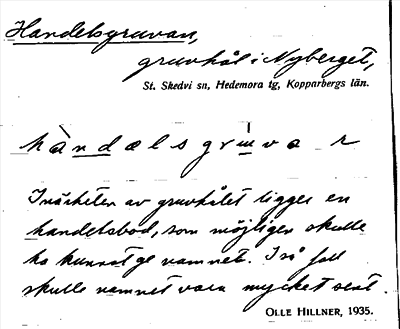 Handelsgruvan,
gruvhål i Nyberget,
St. Skedvi sn, Hedemora tg, Kopparbergs län.
hàndælsgruva n
I närheten av gruvhålet ligger en
handelsbod, som möjligen skulle
ha kunnat ge namnet. I så fall
skulle namnet vara mycket sent.
OLLE HILLNER, 1935.